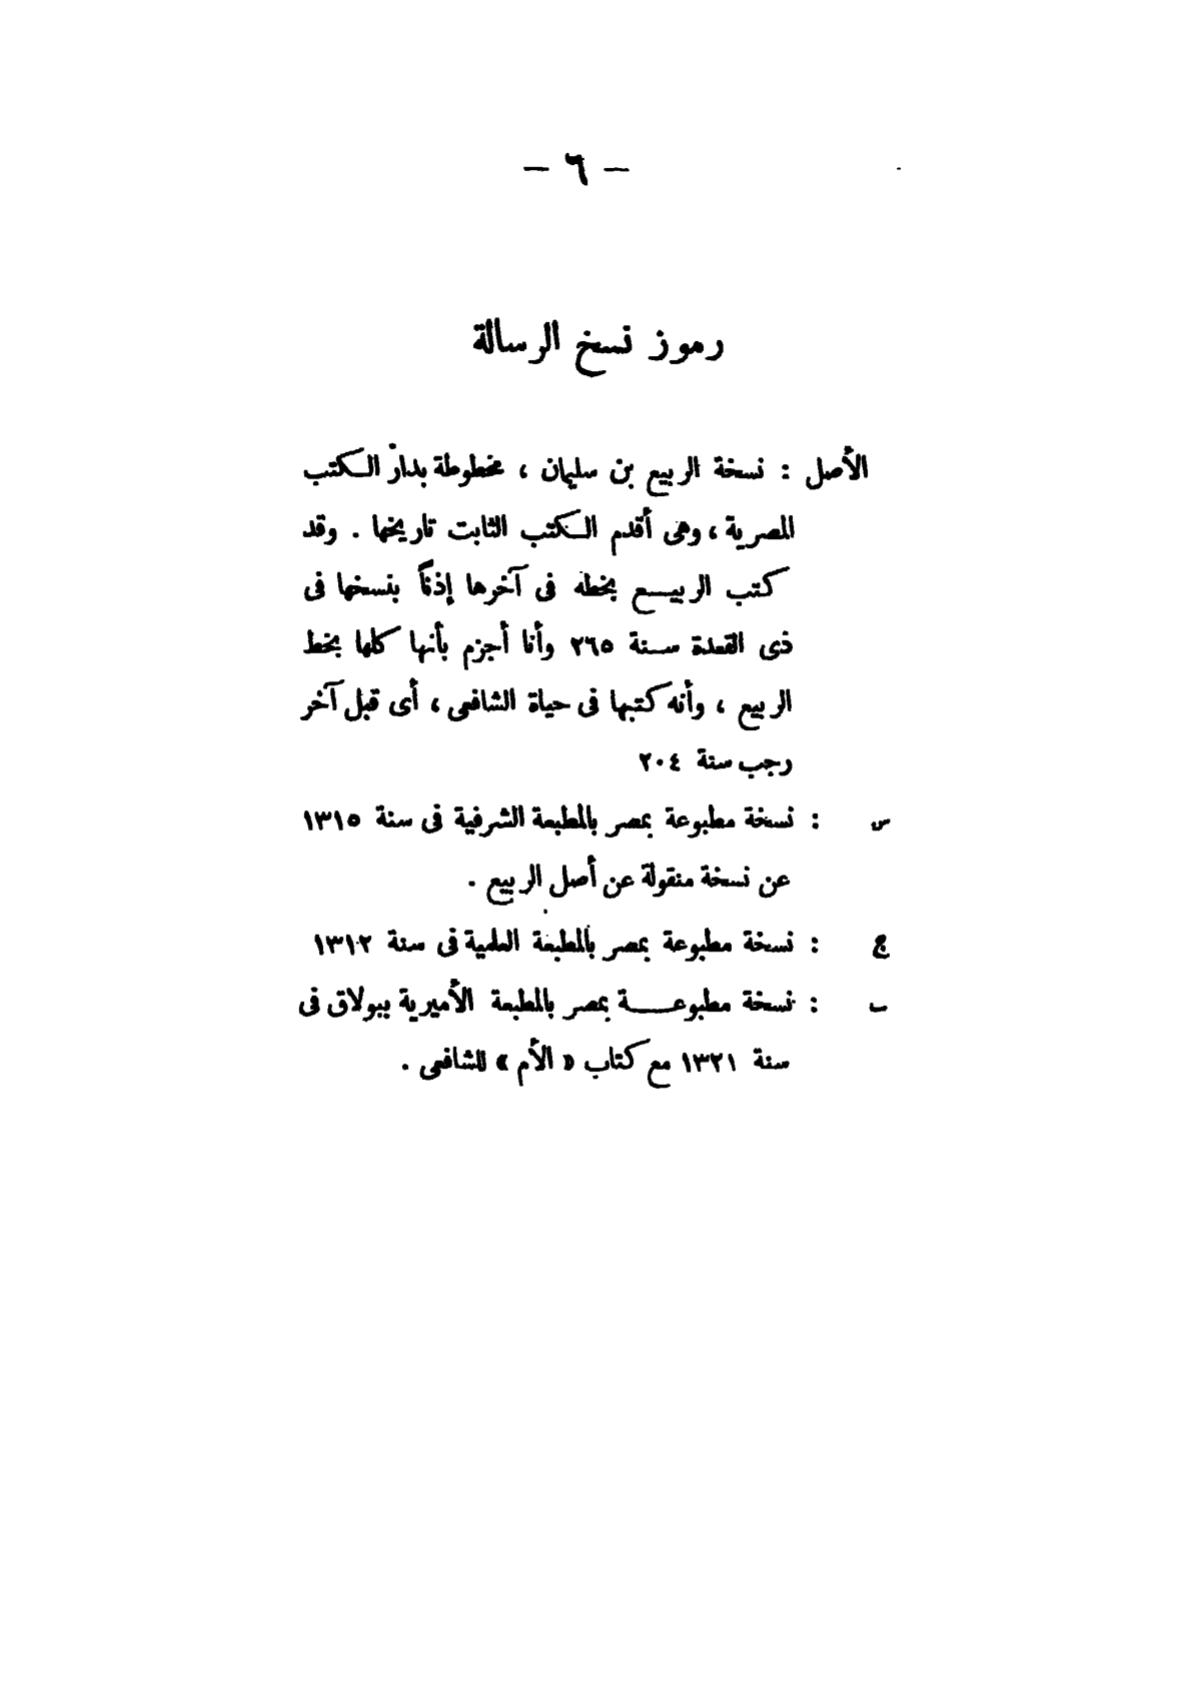 — ٦ —
رموز نسخ الرسالة
الأصل : نسخة الربيع بن سليمان ، مخطوطة بدار الكتب
المصرية ، وهى أقدم الكتب الثابت تاريخها . وقد
كتب الربيع بخطه فى آخرها إذناً بنسخها فى
ذى القعدة سنة ٢٦٥ وأنا أجزم بأنها كلها بخط
الربيع ، وأنه كتبها فى حياة الشافعى ، أى قبل آخر
رجب سنة ٢٠٤
س : نسخة مطبوعة بمصر بالمطبعة الشرفية فى سنة ١٣١٥
عن نسخة منقولة عن أصل الربيع .
ج : نسخة مطبوعة بمصر بالمطبعة العلمية فى سنة ١٣١٢
ب : نسخة مطبوعة بمصر بالمطبعة الأميرية ببولاق فى
سنة ١٣٢١ مع كتاب « الأم » للشافعى .